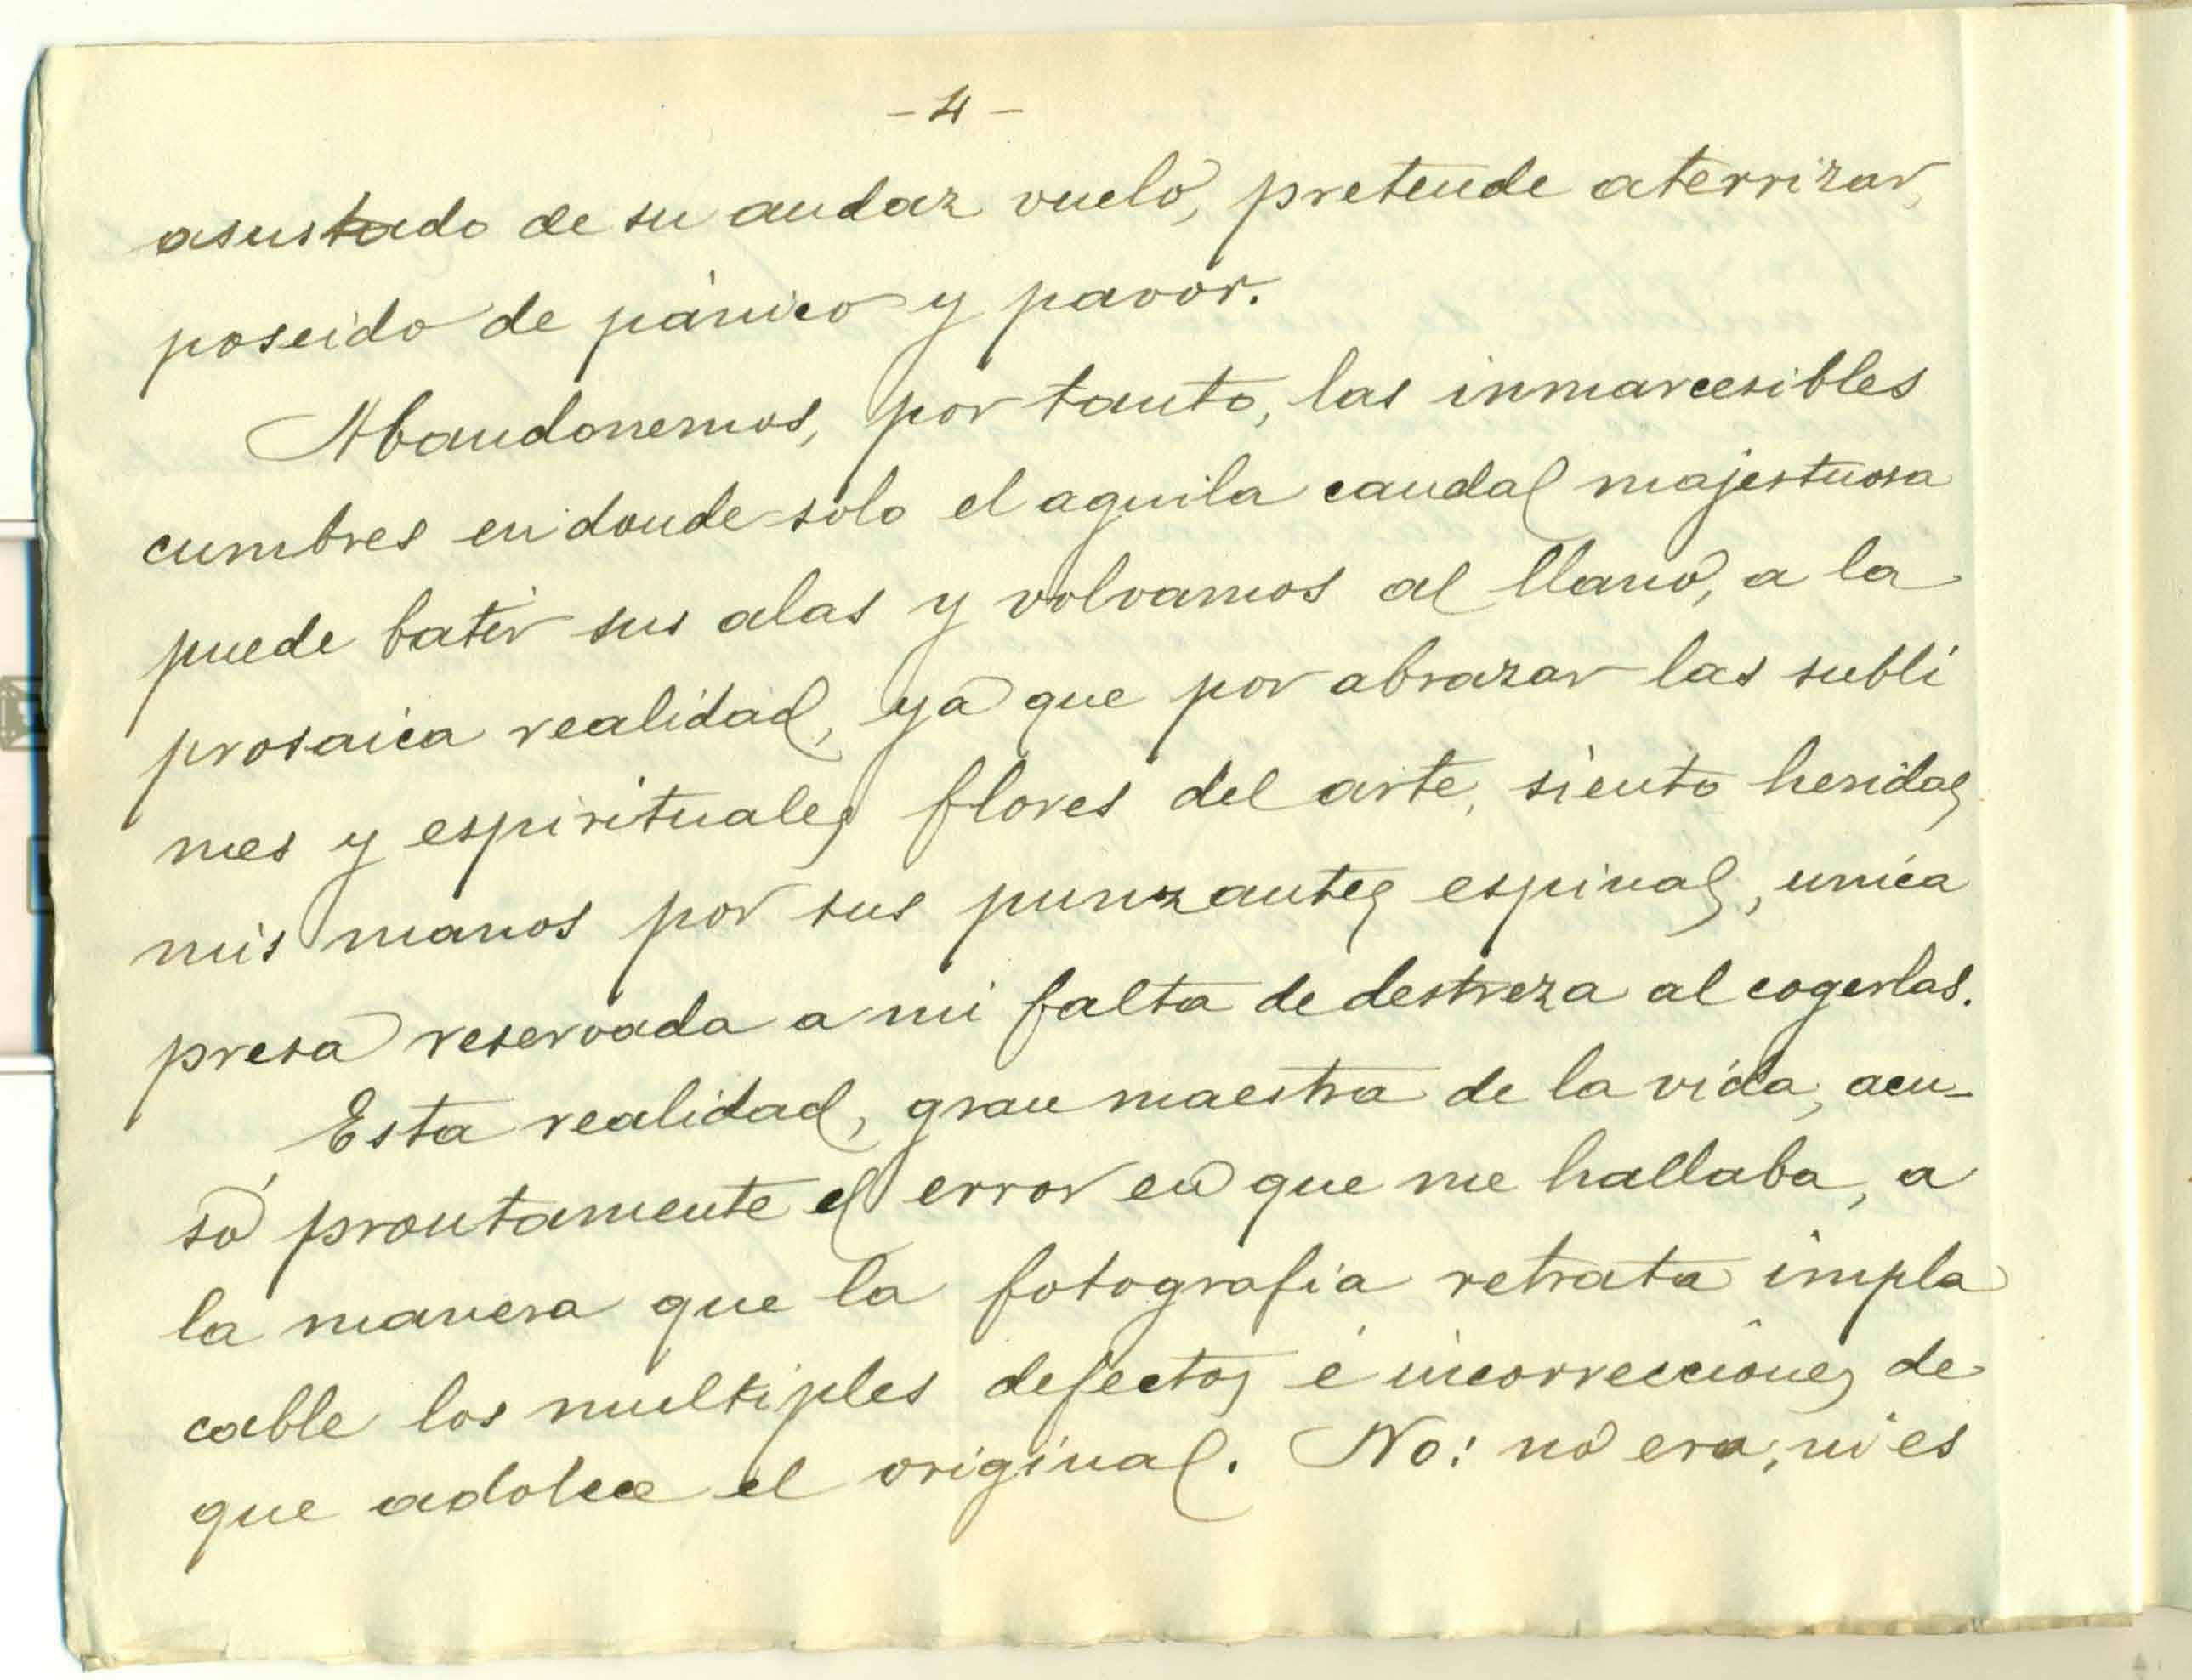 - 4 -
asustado de su audaz vuelo, pretende aterrizar,
poseido de pánico y pavor.
Abandonemos, por tanto, las inmarcesibles
cumbres en donde solo el aguila caudal majestuosa
puede batir sus alas y volvamos al llano, a la
prosaica realidad, ya que por abrazar las subli
mes y espirituales flores del arte, siento heridas
mis manos por sus punzantes espinas, unica
presa reservada a mi falta de destreza al cogerlas.
Esta realidad, gran maestra de la vida, acu-
só prontamente el error en que me hallaba, a
la manera que la fotografia retrata impla
cable los multiples defectos é incorrecciones de
que adolece el original. No: no era, ni es